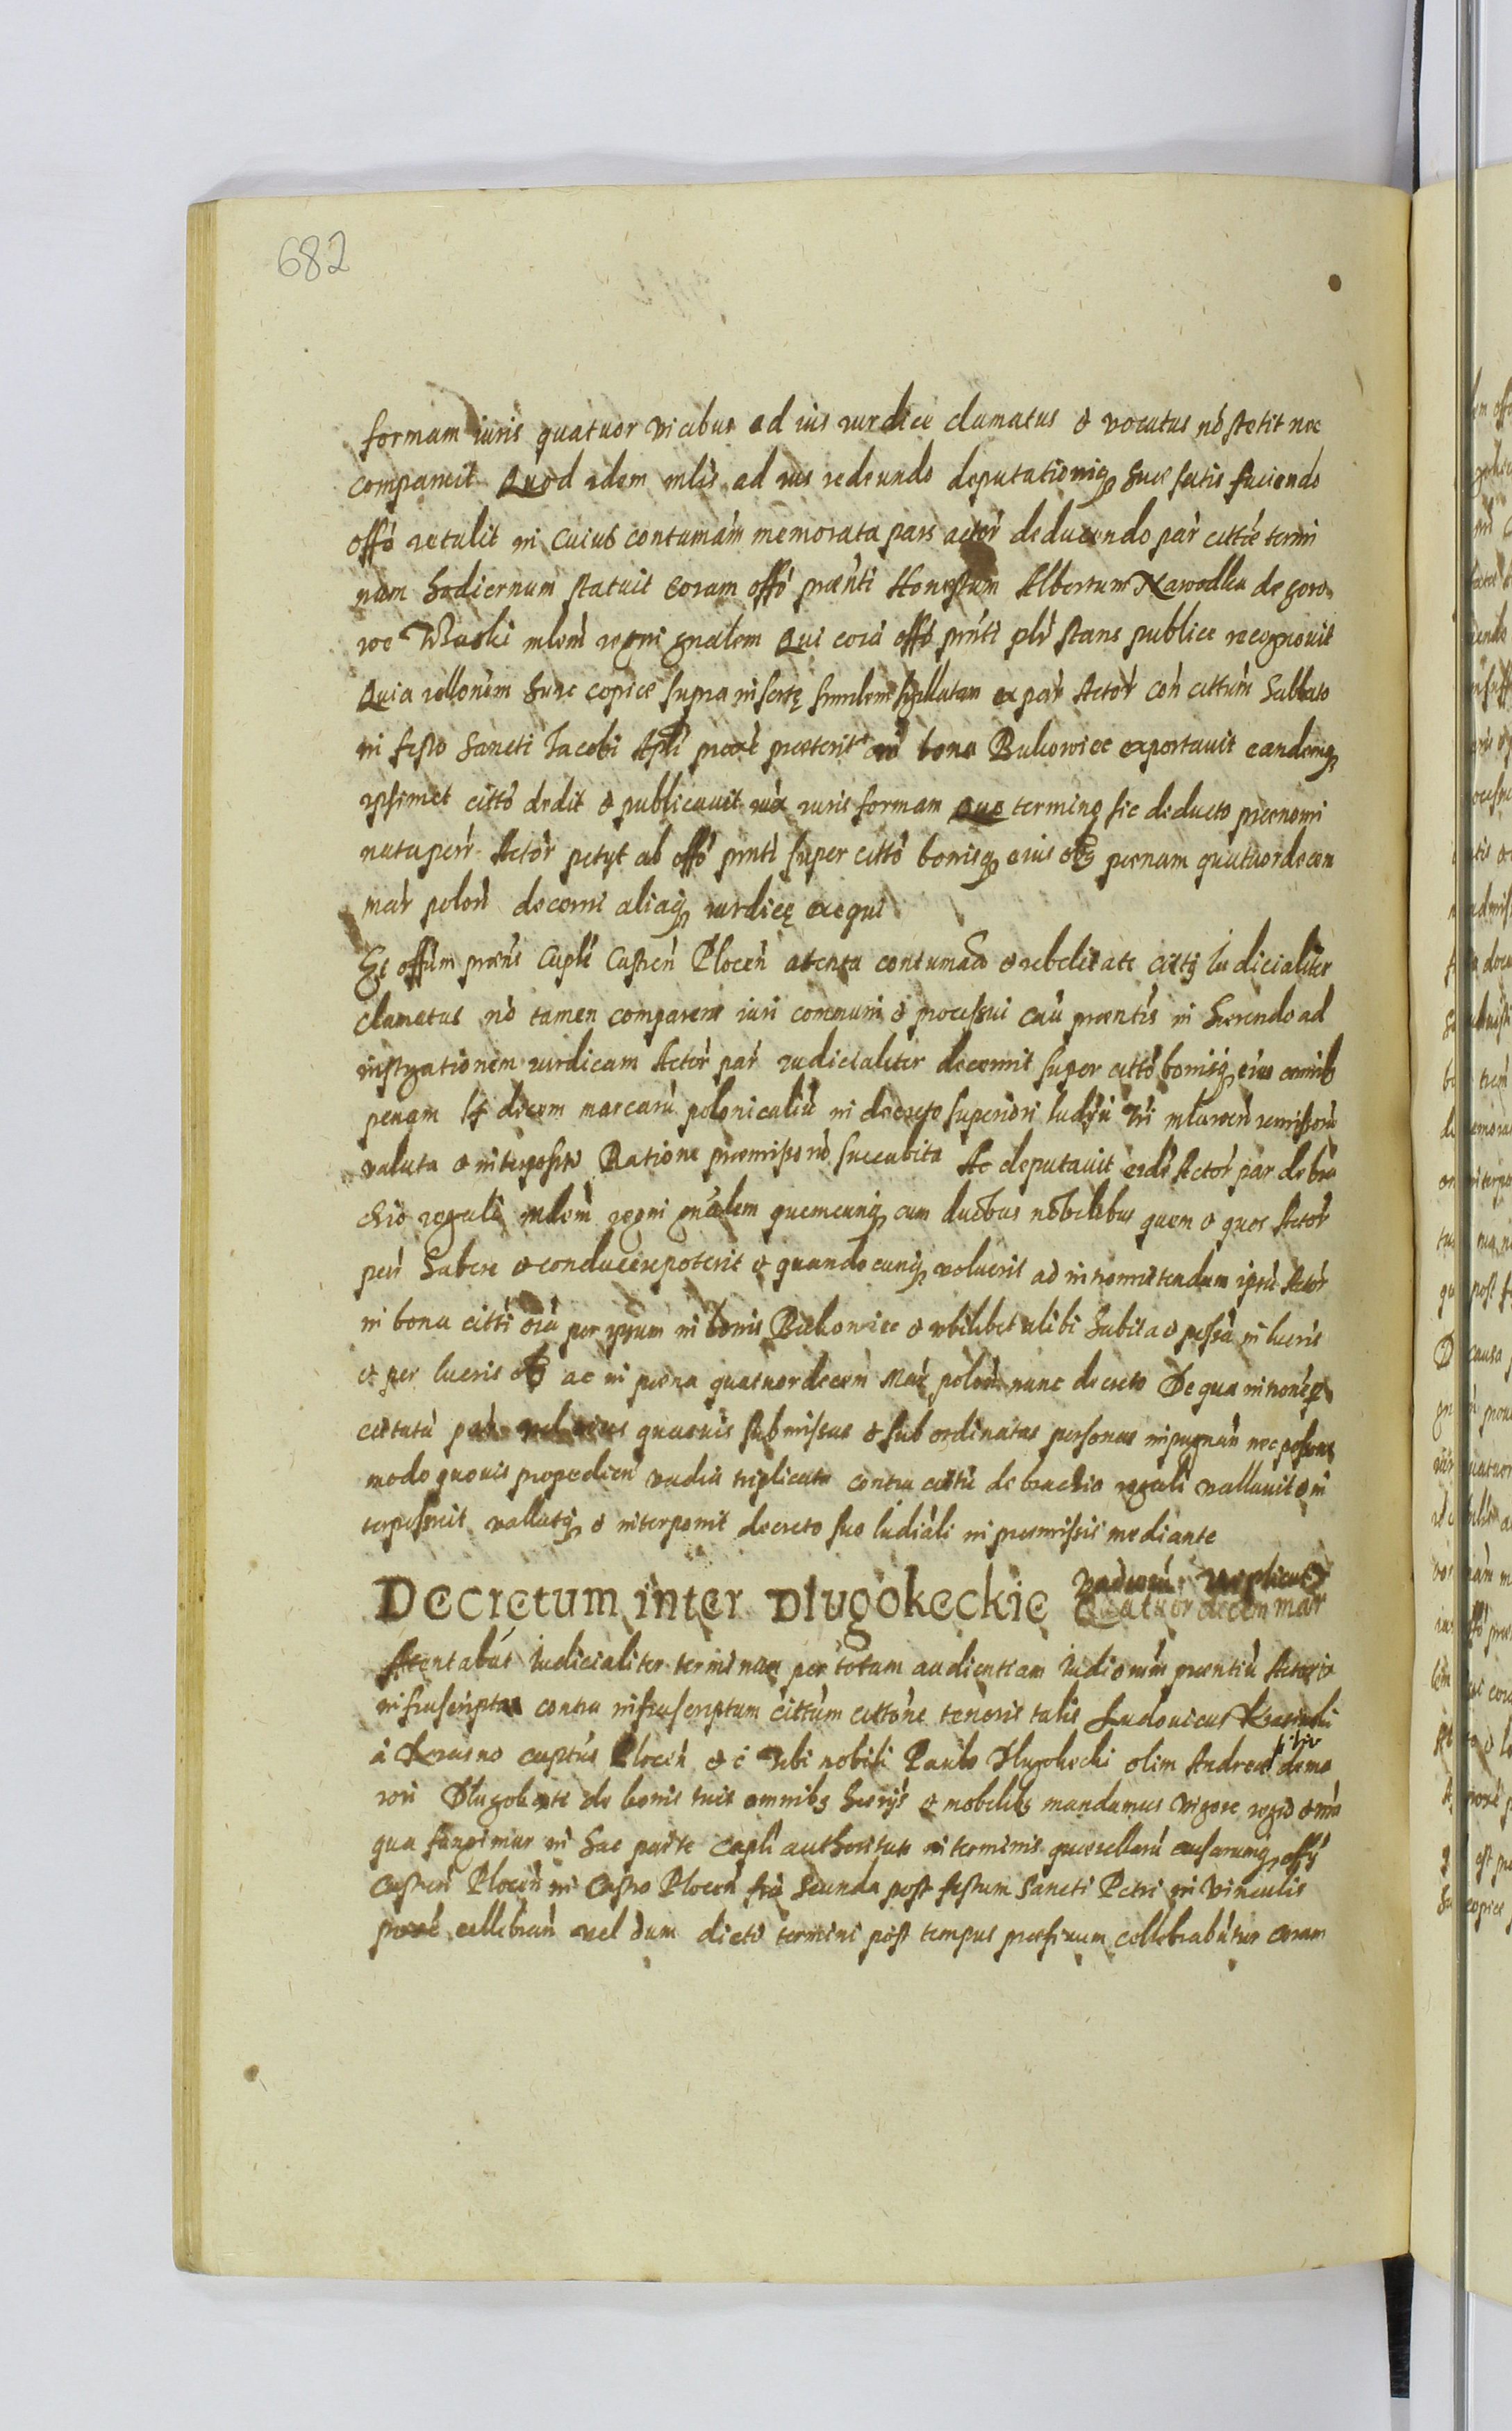 682
formam iuris quatuor vicibus ad ius iurdice clamatus & vocatus nõ stetit nec
comparuit Quod idem mlis ad ius redeundo deputationiq suæ satis faciendo
offõ retulit in cuius contumam memorata pars actor deducendo par cittæ termi
num hodiernum statuit coram offõ præñti Honestum Albertum Nawodka de goro
wo mlem regni gnalem Qui corã offõ prñti plr stans publice recognovit
Quia rellonem hunc copiæ supra insertę similem sigillatam ex par Actor con cittum Sabbato
in festo Sancti Iacobi Apli prox præterito ad bona Bukowiec exportavit eandemq
ipsimet cittõ dedit & publicavit iux iuris formam Quo terminę sic deducto prænomi
nata pars Actor petyt ab offõ prnti super cittõ bonisq eius pœnam quatuordecem
mar polon decerni aliaq iurdicę exequi
Et offum præns Capli Castren Plocen atenta contumacia & rebelitate citti Iudicialiter
clamatus nõ tamen comparens iuri communi & processui cau præntis in hærendo ad
instigationem iurdicam Actor par iudicialiter decernit super cittõ bonisq eius omnib
penam 14 decem marcarũ polonicaliũ in decreto superiori Iudiju mlawen remissoru
valuta & interposito Ratione præmissorũ succubita Ac deputavit eidẽ Actor par de bra
chio regali mlem regni gnalem quemcunq cum duobus nobilibus quem & quos Actor
pars habere & conducere poterit & quandocunq voluerit ad intromittendum ipsũ Actor
in bona citti oĩa per ipsum in bonis Bukowiec & ubilibet alibi habita & possã in lucris
& per lucris ac in pœna quatuordecem Mar polon nunc decreto De qua intronẽ
cittatũ par quasuis submissas & subordinatas personas inpugnan nec possint
modo quovis propedien vadiũ triplicato contra cittũ de brachio regali vallavit & in
terposuit vallatq & interponit decreto suo Iudiali in præmissis mediante
Decretum inter Dlugokeckie Vadiorũ triplicat
Quatuordecem mar
Atentabat Iudicialiter terminum per totam audientiam Iudiorum præntiũ Actoris
infrascriptus contra infrascriptum cittum cittone tenoris talis Ludovicus Krasinski
à Krasno captus Plocen & c Tibi nobili Paulo Dlugokecki olim Andreæ filio de ma
iori Dlugokąte de bonis tuis omnibs hærijs & mobilibs mandamus vigore regio & mã
qua fungimur in hac parte capli authoritate in terminis quærellarũ causarumq offi
Castren Plocen in Castro Plocen fria Secunda post festum Sancti Petri in Vinculis
prox cellebran vel dum dicti termini post tempus præfixum cellebrabũtur coram